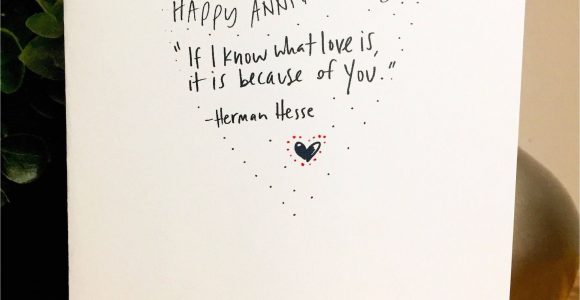 HAPPY
"If I know what love is,
it is because of you."
-Herman Hesse